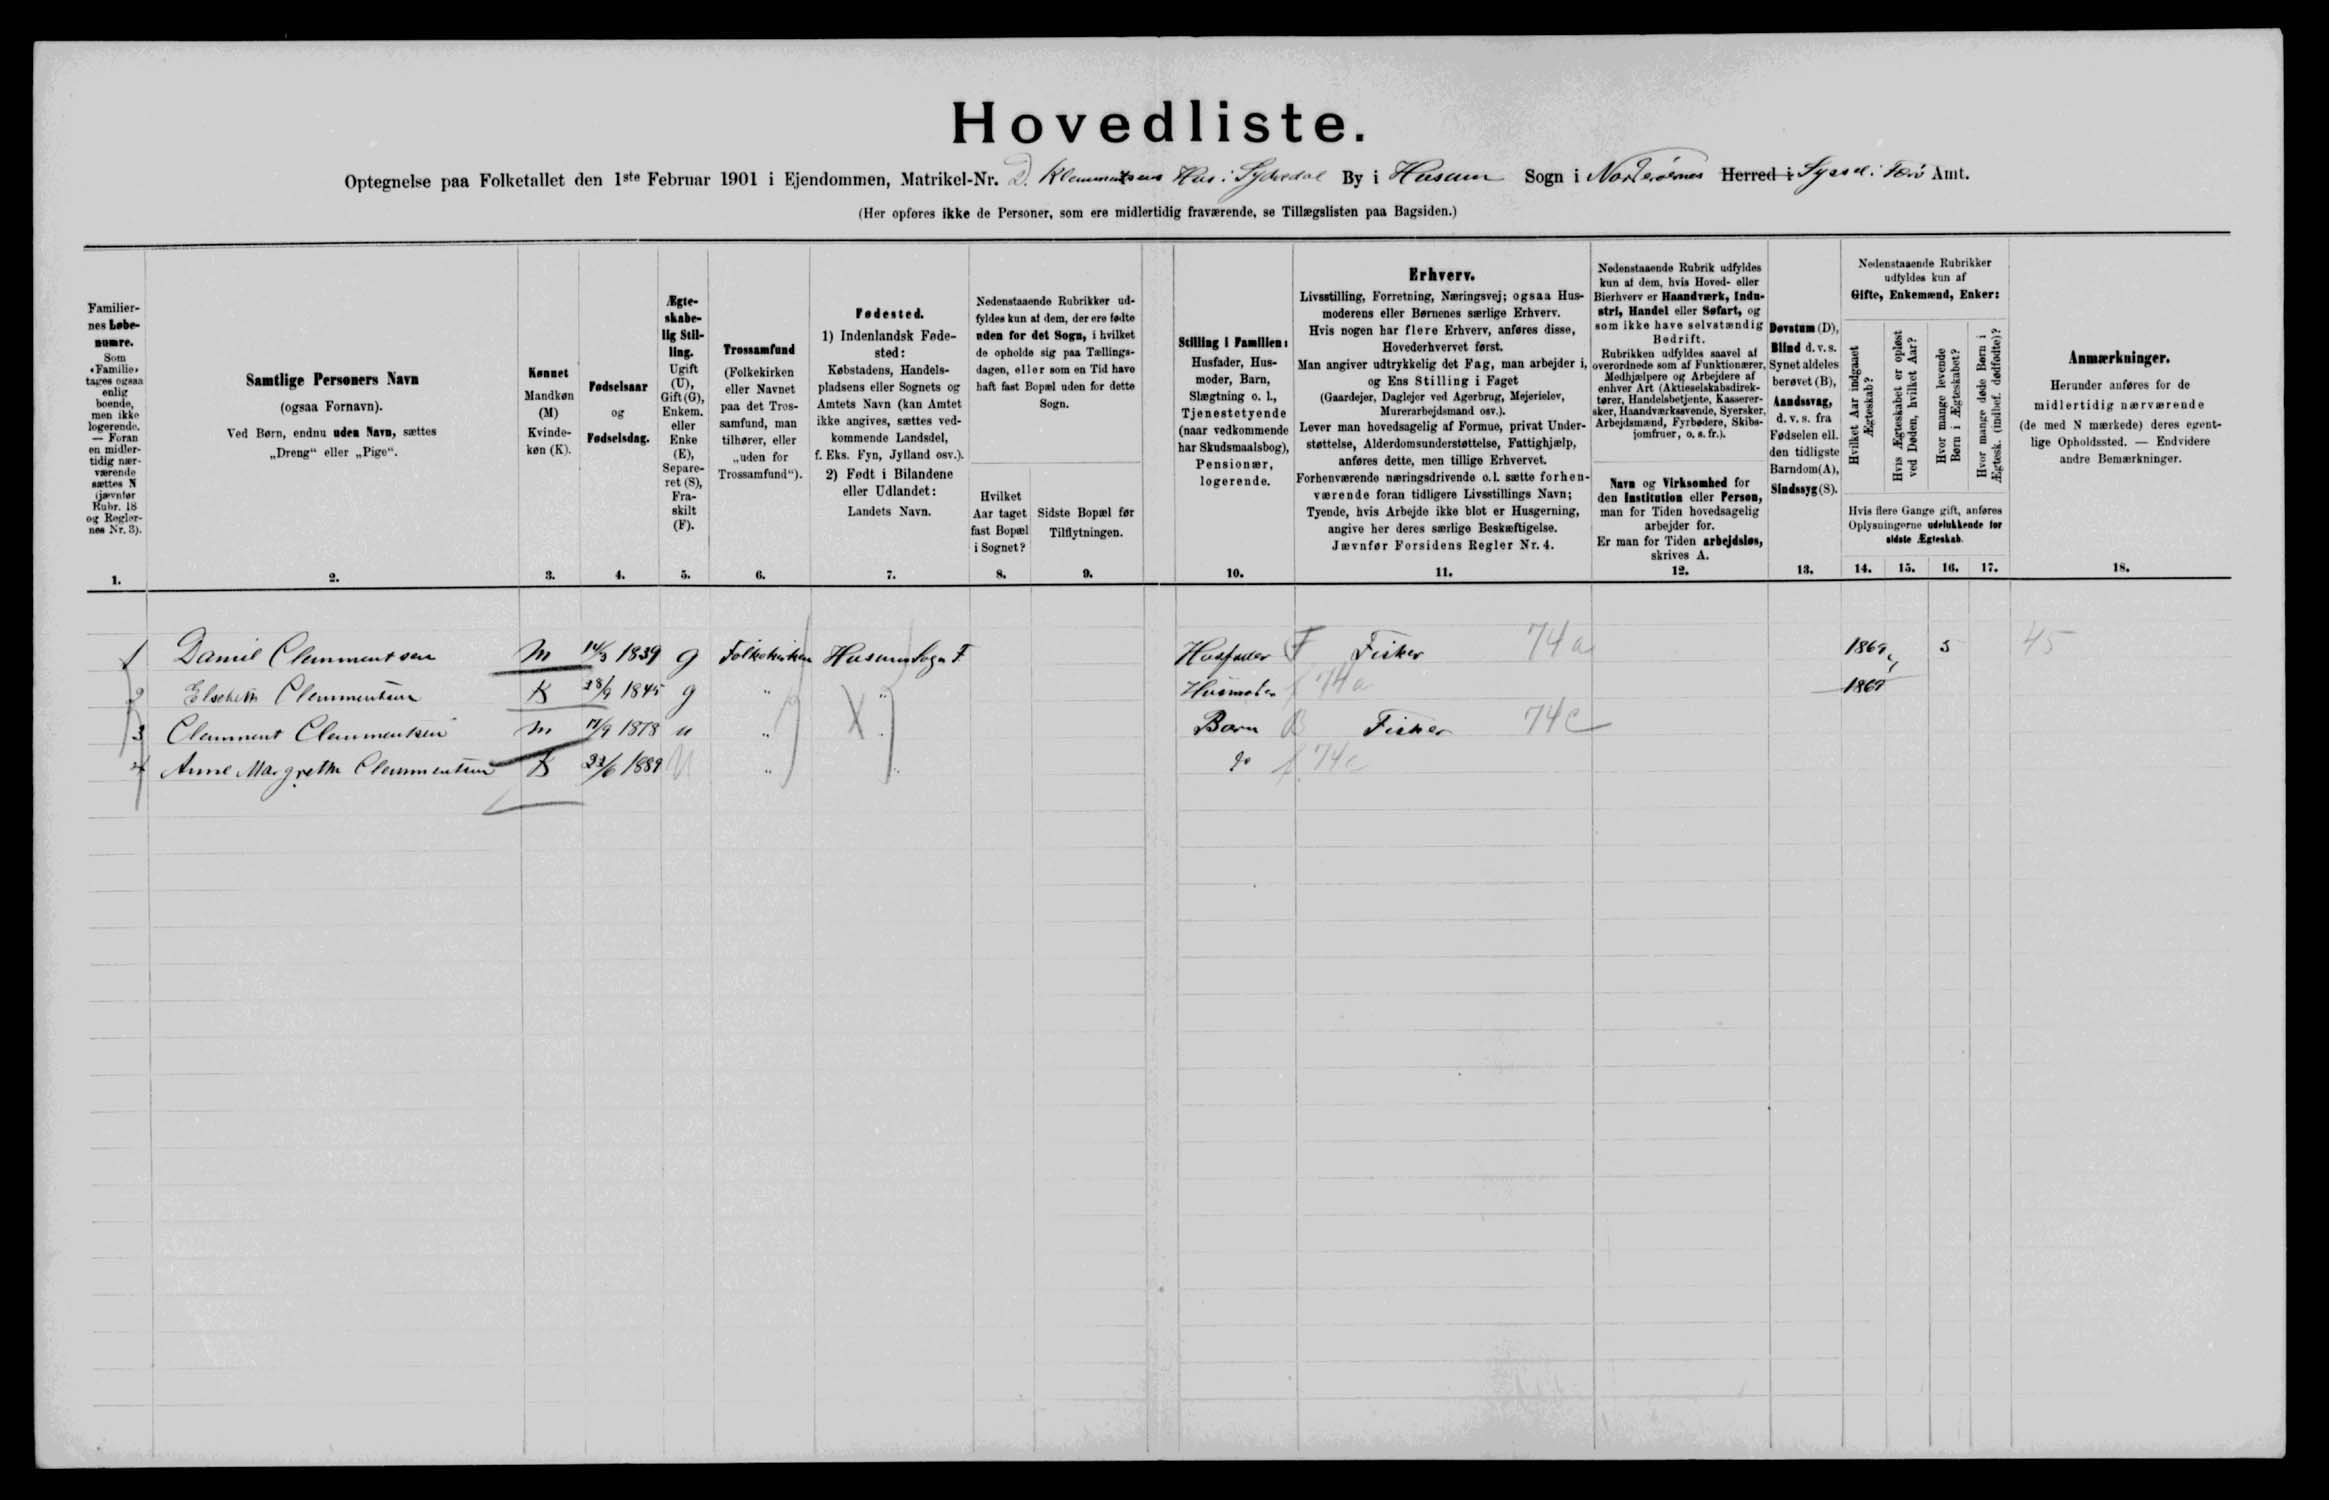 Hovedliste.
Optegnelse paa Folketallet den 1ste Februar 1901 i Ejendommen, Matrikel-Nr. D. Klemmentsens Hus i Sydredal By i Husum Sogn i Norderøernes Herred i Syssel i Færø Amt.
(Her opføres ikke de Personer, som ere midlertidig fraværende, se Tillægslisten paa Bagsiden.)
Familier-
nes Løbe-
numre.
Som
«Familie»
tages ogsaa
enlig
boende,
men ikke
logerende.
— Foran
en midler-
tidig nær-
værende
sættes N
(jævnfør
Rubr. 18
og Regler-
nes Nr. 3).
1.
Samtlige Personers Navn
(ogsaa Fornavn).
Ved Børn, endnu uden Navn, sættes
„Dreng“ eller „Pige“.
2.
Kønnet
Mandkøn
(M)
Kvinde-
køn (K).
3.
Fødselsaar
og
Fødselsdag.
4.
Ægte-
skabe-
lig Stil-
ling.
Ugift
(U),
Gift (G),
Enkem.
eller
Enke
(E),
Separe-
ret (S),
Fra-
skilt
(F).
5.
Trossamfund
(Folkekirken
eller Navnet
paa det Tros-
samfund, man
tilhører, eller
„uden for
Trossamfund“).
6.
Fødested.
1) Indenlandsk Føde-
sted:
Købstadens, Handels-
pladsens eller Sognets og
Amtets Navn (kan Amtet
ikke angives, sættes ved-
kommende Landsdel,
f. Eks. Fyn, Jylland osv.).
2) Født i Bilandene
eller Udlandet:
Landets Navn.
7.
Nedenstaaende Rubrikker ud-
fyldes kun af dem, der ere fødte
uden for det Sogn, i hvilket
de opholde sig paa Tællings-
dagen, eller som en Tid have
haft fast Bopæl uden for dette
Sogn.
Hvilket
Aar taget
fast Bopæl
i Sognet?
8.
Sidste Bopæl før
Tilflytningen.
9.
Stilling i Familien:
Husfader, Hus-
moder, Barn,
Slægtning o. l.,
Tjenestetyende
(naar vedkommende
har Skudsmaalsbog),
Pensionær,
logerende.
10.
Erhverv.
Livsstilling, Forretning, Næringsvej; ogsaa Hus-
moderens eller Børnenes særlige Erhverv.
Hvis nogen har flere Erhverv, anføres disse,
Hovederhvervet først.
Man angiver udtrykkelig det Fag, man arbejder i,
og Ens Stilling i Faget
(Gaardejer, Daglejer ved Agerbrug, Mejerielev,
Murerarbejdsmand osv.).
Lever man hovedsagelig af Formue, privat Under-
støttelse, Alderdomsunderstøttelse, Fattighjælp,
anføres dette, men tillige Erhvervet.
Forhenværende næringsdrivende o. l. sætte forhen-
værende foran tidligere Livsstillings Navn;
Tyende, hvis Arbejde ikke blot er Husgerning,
angive her deres særlige Beskæftigelse.
Jævnfør Forsidens Regler Nr. 4.
11.
Nedenstaaende Rubrik udfyldes
kun af dem, hvis Hoved- eller
Bierhverv er Haandværk, Indu-
stri, Handel eller Søfart, og
som ikke have selvstændig
Bedrift.
Rubrikken udfyldes saavel af
overordnede som af Funktionærer,
Medhjælpere og Arbejdere af
enhver Art (Aktieselskabsdirek-
tører, Handelsbetjente, Kasserer-
sker, Haandværkssvende, Syersker,
Arbejdsmænd, Fyrbødere, Skibs-
jomfruer, o. s. fr.).
Navn og Virksomhed for
den Institution eller Person,
man for Tiden hovedsagelig
arbejder for.
Er man for Tiden arbejdsløs,
skrives A.
12.
Døvstum (D),
Blind d. v. s.
Synet aldeles
berøvet (B),
Aandssvag,
d. v. s. fra
Fødselen ell.
den tidligste
Barndom (A),
Sindssyg (S).
13.
Nedenstaaende Rubrikker
udfyldes kun af
Gifte, Enkemænd, Enker:
Hvilket Aar indgaaet
Ægteskab?
Hvis Ægteskabet er opløst
ved Døden, hvilket Aar?
Hvor mange levende
Børn i Ægteskabet?
Hvor mange døde Børn i
Ægtesk. (indbef. dødfødte)?
Hvis flere Gange gift, anføres
Oplysningerne udelukkende for
sidste Ægteskab.
14. 15. 16. 17.
Anmærkninger.
Herunder anføres for de
midlertidig nærværende
(de med N mærkede) deres egent-
lige Opholdssted. — Endvidere
andre Bemærkninger.
18.
1 Daniel Clemmentsen M 14/3 1839 g Folkekirken Husum Sogn F Husfader F Fisker 74a 1869 5 45
2 Elsebeth Clemmentsen K 28/9 1845 g " " Husmoder f 74a 1869
3 Clemment Clemmentsen M 11/9 1878 u " X " Barn B Fisker 74c
4 Anne Margrethe Clemmentsen K 23/6 1889 U " " do f 74c